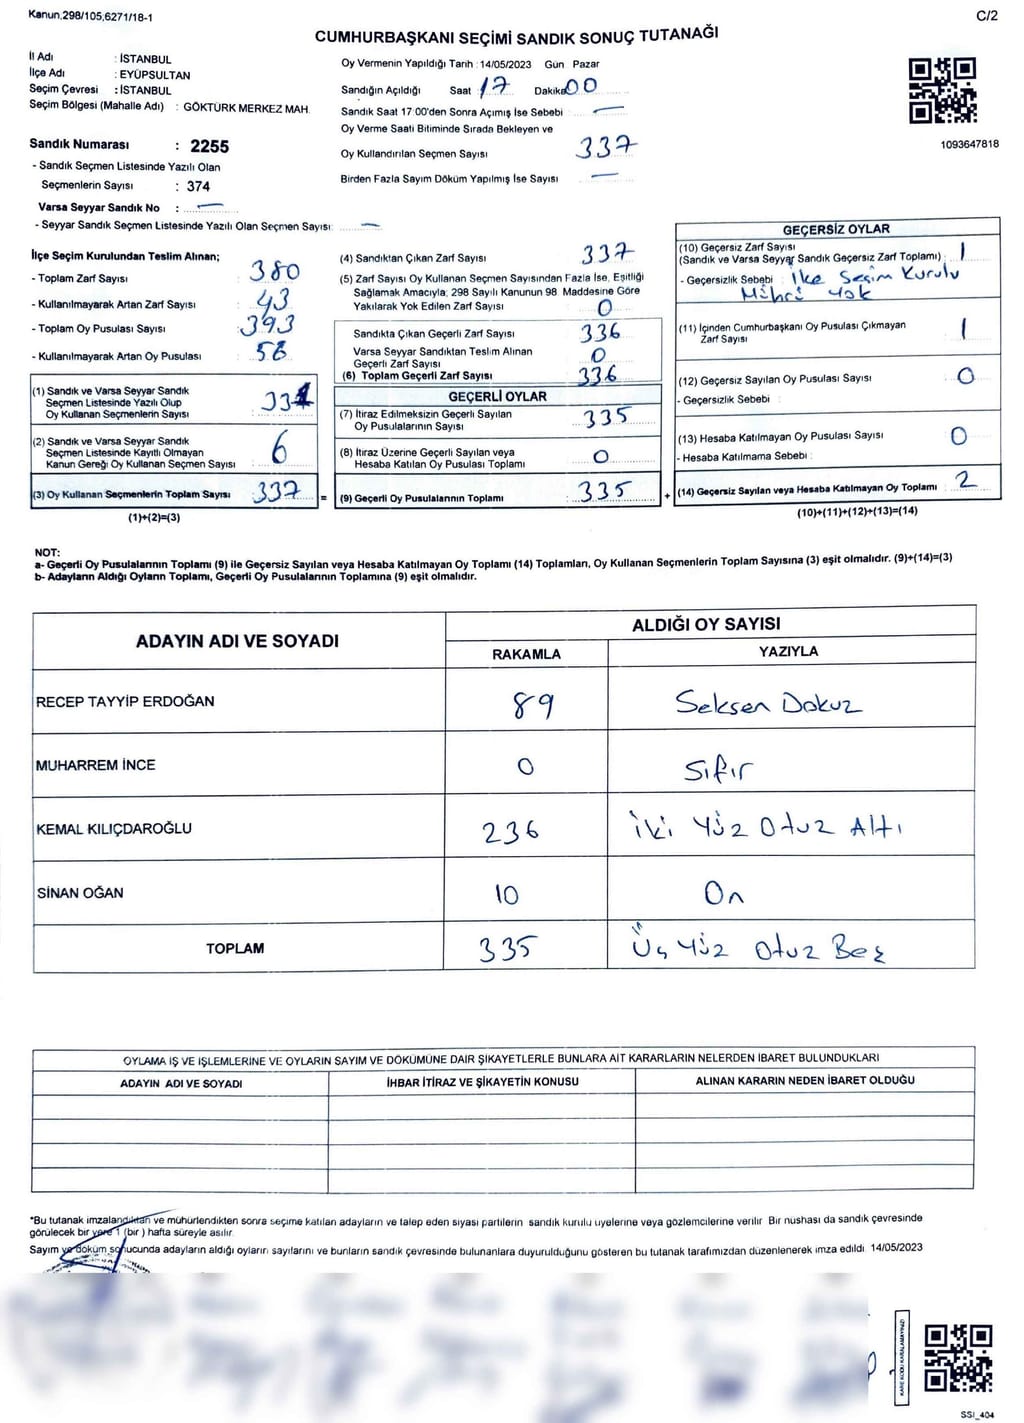 Kanun.298/105,6271/18-1
C/2
CUMHURBAŞKANI SEÇİMİ SANDIK SONUÇ TUTANAĞI
İl Adı : İSTANBUL
İlçe Adı : EYÜPSULTAN
Seçim Çevresi : İSTANBUL
Seçim Bölgesi (Mahalle Adı) : GÖKTÜRK MERKEZ MAH.
Sandık Numarası : 2255
- Sandık Seçmen Listesinde Yazılı Olan
Seçmenlerin Sayısı : 374
Varsa Seyyar Sandık No : —
- Seyyar Sandık Seçmen Listesinde Yazılı Olan Seçmen Sayısı: —
Oy Vermenin Yapıldığı Tarih : 14/05/2023 Gün Pazar
Sandığın Açıldığı Saat 17 Dakika 00
Sandık Saat 17:00'den Sonra Açımış İse Sebebi : —
Oy Verme Saati Bitiminde Sırada Bekleyen ve
Oy Kullandırılan Seçmen Sayısı 337
Birden Fazla Sayım Döküm Yapılmış İse Sayısı : —
1093647818
İlçe Seçim Kurulundan Teslim Alınan;
- Toplam Zarf Sayısı : 380
- Kullanılmayarak Artan Zarf Sayısı : 43
- Toplam Oy Pusulası Sayısı : 393
- Kullanılmayarak Artan Oy Pusulası : 58
(1) Sandık ve Varsa Seyyar Sandık
Seçmen Listesinde Yazılı Olup
Oy Kullanan Seçmenlerin Sayısı : 331
(2) Sandık ve Varsa Seyyar Sandık
Seçmen Listesinde Kayıtlı Olmayan
Kanun Gereği Oy Kullanan Seçmen Sayısı : 6
(3) Oy Kullanan Seçmenlerin Toplam Sayısı : 337
(1)+(2)=(3)
(4) Sandıktan Çıkan Zarf Sayısı : 337
(5) Zarf Sayısı Oy Kullanan Seçmen Sayısından Fazla İse, Eşitliği
Sağlamak Amacıyla; 298 Sayılı Kanunun 98 Maddesine Göre
Yakılarak Yok Edilen Zarf Sayısı : 0
Sandıkta Çıkan Geçerli Zarf Sayısı : 336
Varsa Seyyar Sandıktan Teslim Alınan
Geçerli Zarf Sayısı : 0
(6) Toplam Geçerli Zarf Sayısı : 336
GEÇERLİ OYLAR
(7) İtiraz Edilmeksizin Geçerli Sayılan
Oy Pusulalarının Sayısı : 335
(8) İtiraz Üzerine Geçerli Sayılan veya
Hesaba Katılan Oy Pusulası Toplamı : 0
= (9) Geçerli Oy Pusulalarının Toplamı : 335
GEÇERSİZ OYLAR
(10) Geçersiz Zarf Sayısı
(Sandık ve Varsa Seyyar Sandık Geçersiz Zarf Toplamı) : 1
- Geçersizlik Sebebi : İlçe Seçim Kurulu
Mührü Yok
(11) İçinden Cumhurbaşkanı Oy Pusulası Çıkmayan
Zarf Sayısı : 1
(12) Geçersiz Sayılan Oy Pusulası Sayısı : 0
- Geçersizlik Sebebi :
(13) Hesaba Katılmayan Oy Pusulası Sayısı : 0
- Hesaba Katılmama Sebebi :
+ (14) Geçersiz Sayılan veya Hesaba Katılmayan Oy Toplamı : 2
(10)+(11)+(12)+(13)=(14)
NOT:
a- Geçerli Oy Pusulalarının Toplamı (9) ile Geçersiz Sayılan veya Hesaba Katılmayan Oy Toplamı (14) Toplamları, Oy Kullanan Seçmenlerin Toplam Sayısına (3) eşit olmalıdır. (9)+(14)=(3)
b- Adayların Aldığı Oyların Toplamı, Geçerli Oy Pusulalarının Toplamına (9) eşit olmalıdır.
ADAYIN ADI VE SOYADI
ALDIĞI OY SAYISI
RAKAMLA YAZIYLA
RECEP TAYYİP ERDOĞAN 89 Seksen Dokuz
MUHARREM İNCE 0 Sıfır
KEMAL KILIÇDAROĞLU 236 İki Yüz Otuz Altı
SİNAN OĞAN 10 On
TOPLAM 335 Üç Yüz Otuz Beş
OYLAMA İŞ VE İŞLEMLERİNE VE OYLARIN SAYIM VE DÖKÜMÜNE DAİR ŞİKAYETLERLE BUNLARA AİT KARARLARIN NELERDEN İBARET BULUNDUKLARI
ADAYIN ADI VE SOYADI İHBAR İTİRAZ VE ŞİKAYETİN KONUSU ALINAN KARARIN NEDEN İBARET OLDUĞU
*Bu tutanak imzalandıktan ve mühürlendikten sonra seçime katılan adayların ve talep eden siyasi partilerin sandık kurulu üyelerine veya gözlemcilerine verilir. Bir nushası da sandık çevresinde
görülecek bir yere 1 (bir) hafta süreyle asılır.
Sayım ve döküm sonucunda adayların aldığı oyların sayılarını ve bunların sandık çevresinde bulunanlara duyurulduğunu gösteren bu tutanak tarafımızdan düzenlenerek imza edildi. 14/05/2023
KARE KODU KARALAMAYINIZ!
SSI_404